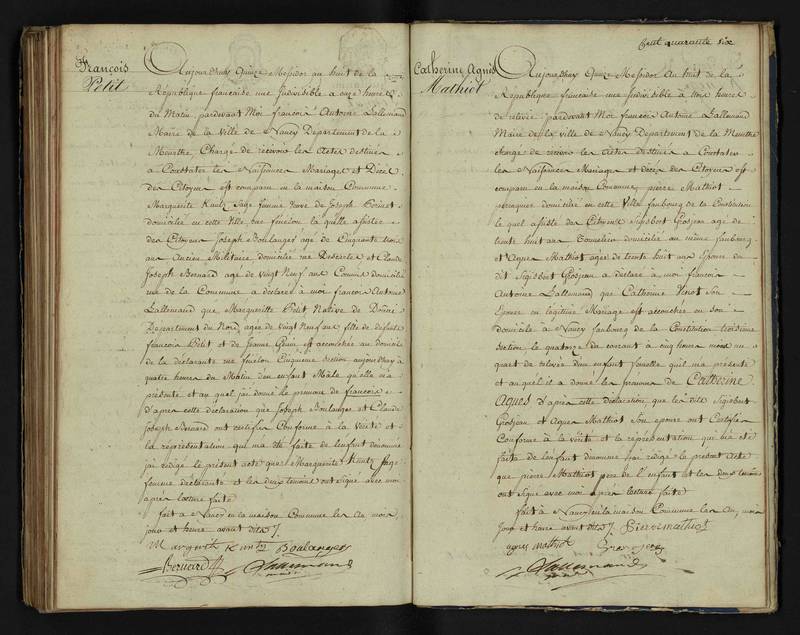 François
Petit
Aujourdhuy Quinze Messidor an huit de la
République française une Indivisible a onze heures
du Matin pardevant Moi françois Antoine Lallemand
Maire de la Ville de Nancy Departement de la
Meurthe, Chargé de recevoir les Actes destinés
a Constater les Naissances Mariages et Décès
des Citoyens est comparu en la maison Commune
Marguerite Kuntz Sage femme veuve de Joseph
domiciliée en cette Ville rue fénelon laquelle assistée
des Citoyens Joseph Boulanger agé de Cinquante trois
ans Ancien Militaire domicilié rue Descartes et Claude
Joseph Bernard agé de Vingt Neuf ans Commis domicilié
rue de la Commune a déclaré a moi françois Antoine
Lallemand que Marguerite Petit Native de
Departement du Nord agée de vingt neuf ans fille de défunt
françois Petit et de Jeanne est accouchée au domicile
de la déclarante rue fénelon Cinquieme Section aujourdhuy a
quatre heures du Matin d'un enfant Mâle qu'elle m'a
présenté et au quel j'ai donné le prenom de françois
d'après cette déclaration que Joseph Boulanger et Claude
Joseph Bernard ont certifié Conforme à la Vérité et
la représentation qui ma été faite de l'enfant denommé
j'ai rédigé le présent acte que Marguerite Kuntz Sage
femme déclarante et les deux temoins ont signé avec moi
après lecture faite
fait à Nancy en la maison Commune les an mois
jour et heure avant dits
Margrith Kuntz Boulanger
Bernard Lallemand
Cent quarante six
Catherine Agnès
Mathiot
Aujourdhuy Quinze Messidor An huit de la
République française une Indivisible à trois heures
de relevée pardevant Moi françois Antoine Lallemand
Maire de la ville de Nancy Departement de la Meurthe
chargé de recevoir les Actes destinés a Constater
les Naissances Mariages et Décès des Citoyens est
comparu en la maison Commune, pierre Mathiot
perruquier domicilié en cette Ville faubourg de la Constitution
le quel assisté des Citoyens Sigisbert Grosjean agé de
trente huit ans Tonnelier domicilié au même faubourg
et Agnès Mathiot agée de trente huit ans Epouse du
dit Sigisbert Grosjean a déclaré à moi françois
Antoine Lallemand que Catherine Son
Epouse en légitime Mariage est accouchée en son
domicile à Nancy faubourg de la Constitution troisième
Section le quatorze du courant à cinq heures moins un
quart de relevée d'un enfant femelle qu'il ma présenté
et auquel il a donné les prenoms de Catherine
Agnès d'après cette déclaration, que les dits Sigisbert
Grosjean et Agnès Mathiot Son epouse ont Certifié
Conforme à la vérité et la représentation qui ma été
faite de l'enfant denommé j'ai rédigé le présent Acte
que pierre Mathiot pere de l'enfant et les deux temoins
ont signé avec moi après lecture faite
fait à Nancy en la maison Commune les an, mois
Jour et heure avant dits Pierre mathiot
agnes mathiot Grosjean
Lallemand